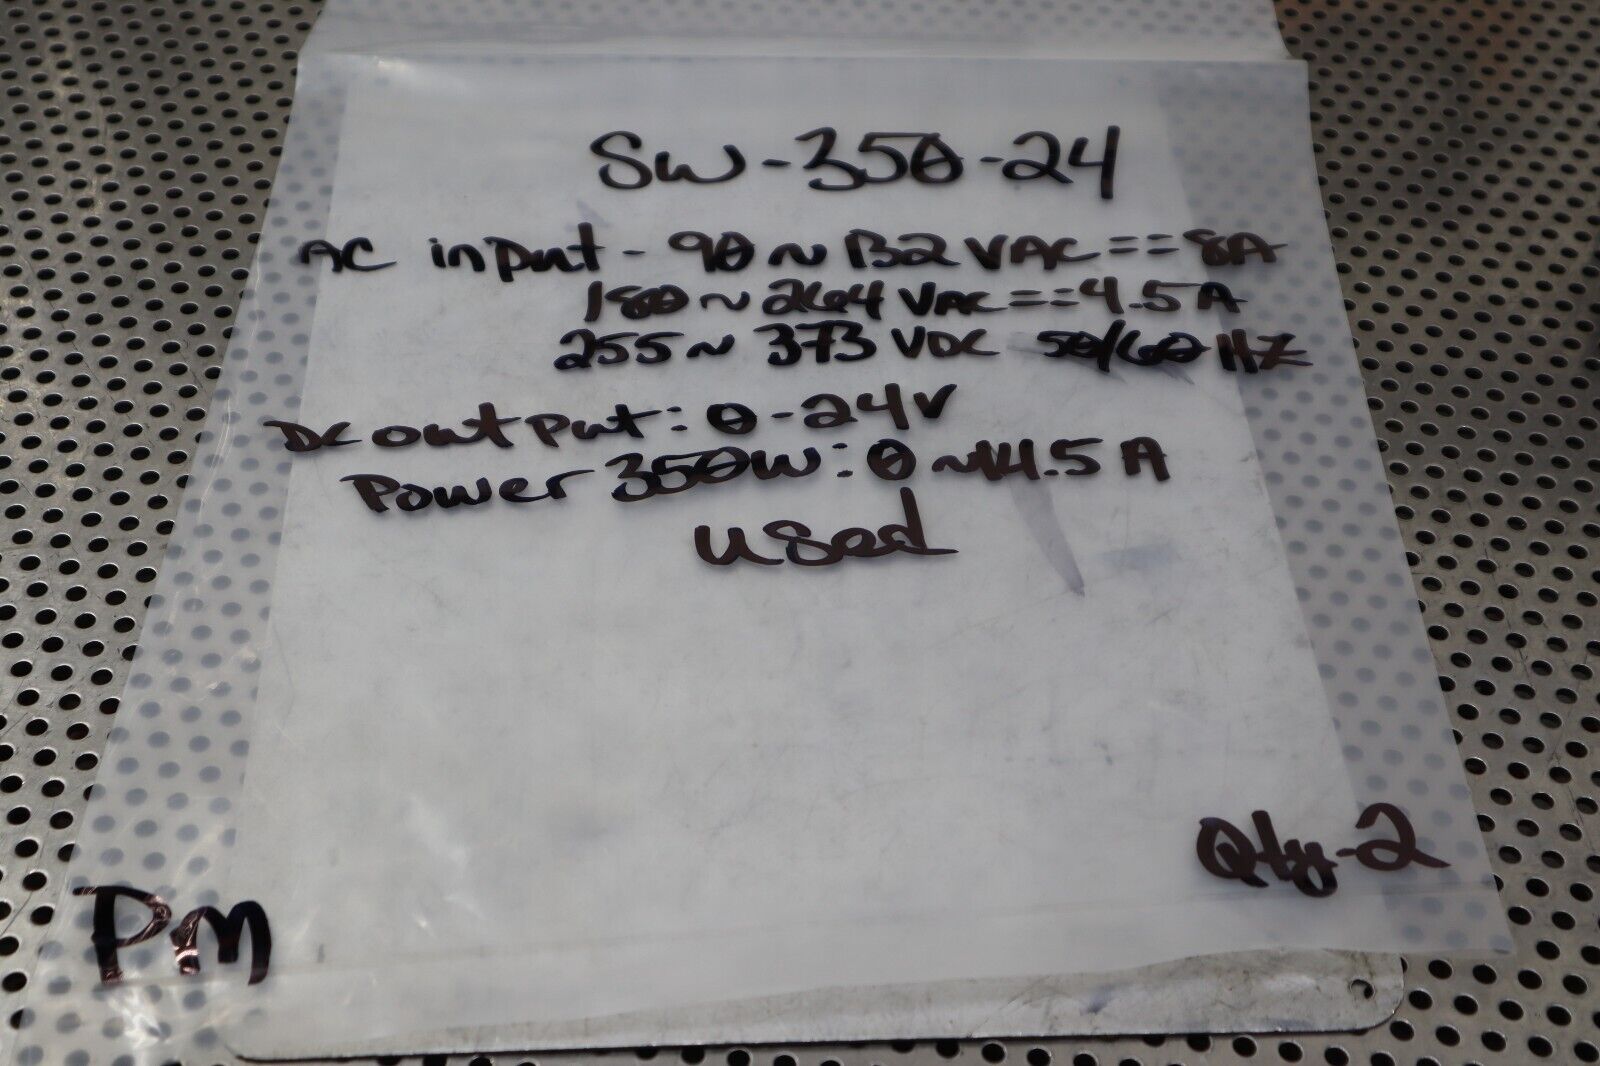 SW-350-24
AC input - 90~132 VAC == 8A
180~264 VAC == 4.5A
255~373 VDC 50/60 HZ
DC output: 0-24V
Power 350W: 0~14.5A
used
Qty-2
PM